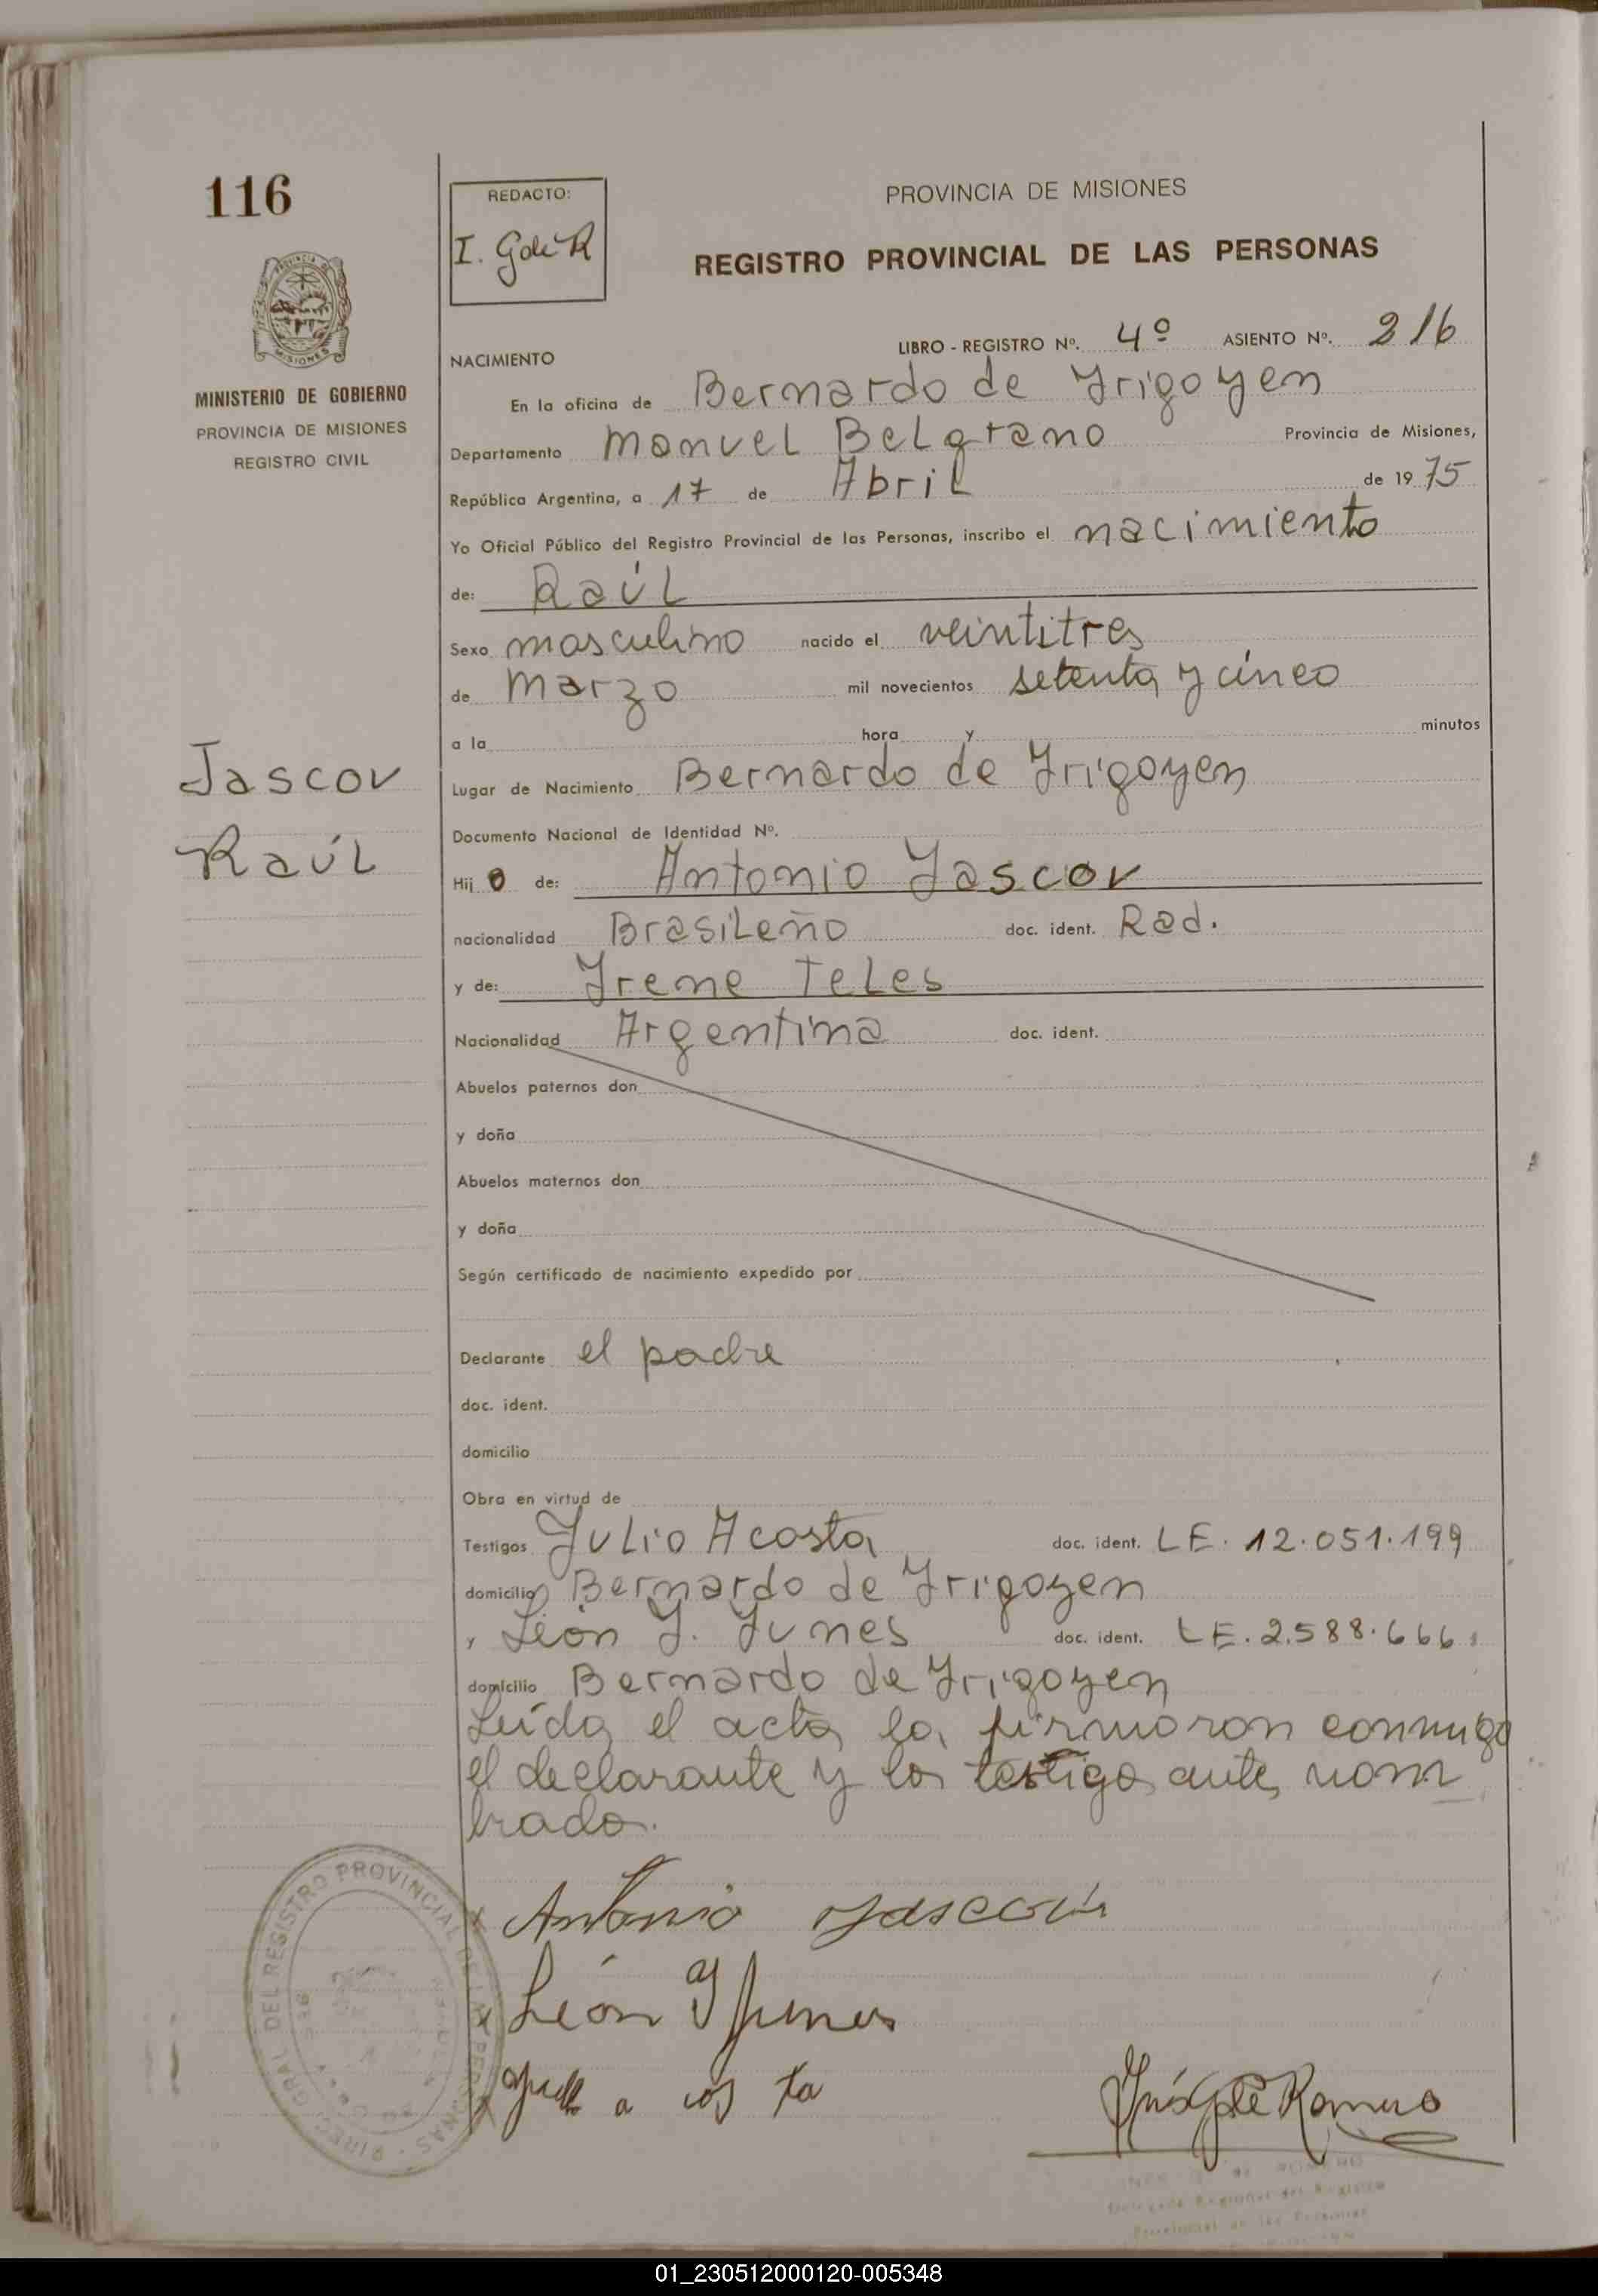 116
REDACTO:
I. G de R
PROVINCIA DE MISIONES
REGISTRO PROVINCIAL DE LAS PERSONAS
MINISTERIO DE GOBIERNO
PROVINCIA DE MISIONES
REGISTRO CIVIL
LIBRO - REGISTRO Nº. 4º ASIENTO Nº. 216
NACIMIENTO
En la oficina de Bernardo de Yrigoyen
Departamento Manuel Belgrano Provincia de Misiones,
República Argentina, a 17 de Abril de 1975
Yo Oficial Público del Registro Provincial de las Personas, inscribo el nacimiento
de: Raúl
Sexo masculino nacido el veintitres
de Marzo mil novecientos setenta y cinco
a la hora y minutos
Jascov
Raúl
Lugar de Nacimiento Bernardo de Yrigoyen
Documento Nacional de Identidad Nº.
Hij o de: Antonio Jascov
nacionalidad Brasileño doc. ident. Rad.
y de: Yrene Teles
Nacionalidad Argentina doc. ident.
Abuelos paternos don
y doña
Abuelos maternos don
y doña
Según certificado de nacimiento expedido por
Declarante el padre
doc. ident.
domicilio
Obra en virtud de
Testigos Julio Acosta doc. ident. LE. 12.051.199
domicilio Bernardo de Yrigoyen
y León Y. Yunes doc. ident. LE. 2.588.666
domicilio Bernardo de Yrigoyen
Leida el acta la firmaron conmigo
el declarante y los testigos antes nom
brados.
Antonio
León Y Yunes
DIREC. GRAL. DEL REGISTRO PROVINCIAL DE LAS PERSONAS
01_230512000120-005348